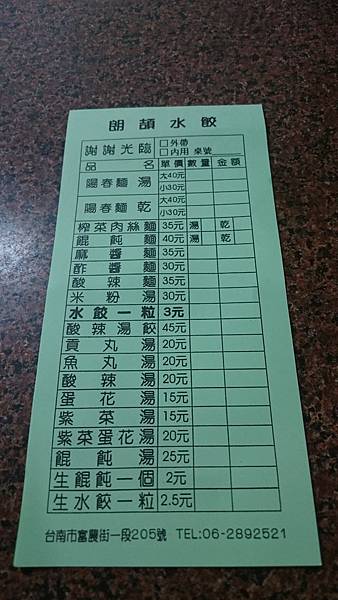 朗頡水餃
謝謝光臨 □外帶
□內用 桌號
品名 單價 數量 金額
陽春麵 湯 大40元
小30元
陽春麵 乾 大40元
小30元
榨菜肉絲麵 35元 湯 乾
餛飩麵 40元 湯 乾
麻醬麵 35元
酢醬麵 30元
酸辣麵 35元
米粉湯 30元
水餃一粒 3元
酸辣湯餃 45元
貢丸湯 20元
魚丸湯 20元
酸辣湯 20元
蛋花湯 15元
紫菜湯 15元
紫菜蛋花湯 20元
餛飩湯 25元
生餛飩一個 2元
生水餃一粒 2.5元
台南市富農街一段205號 TEL:06-2892521